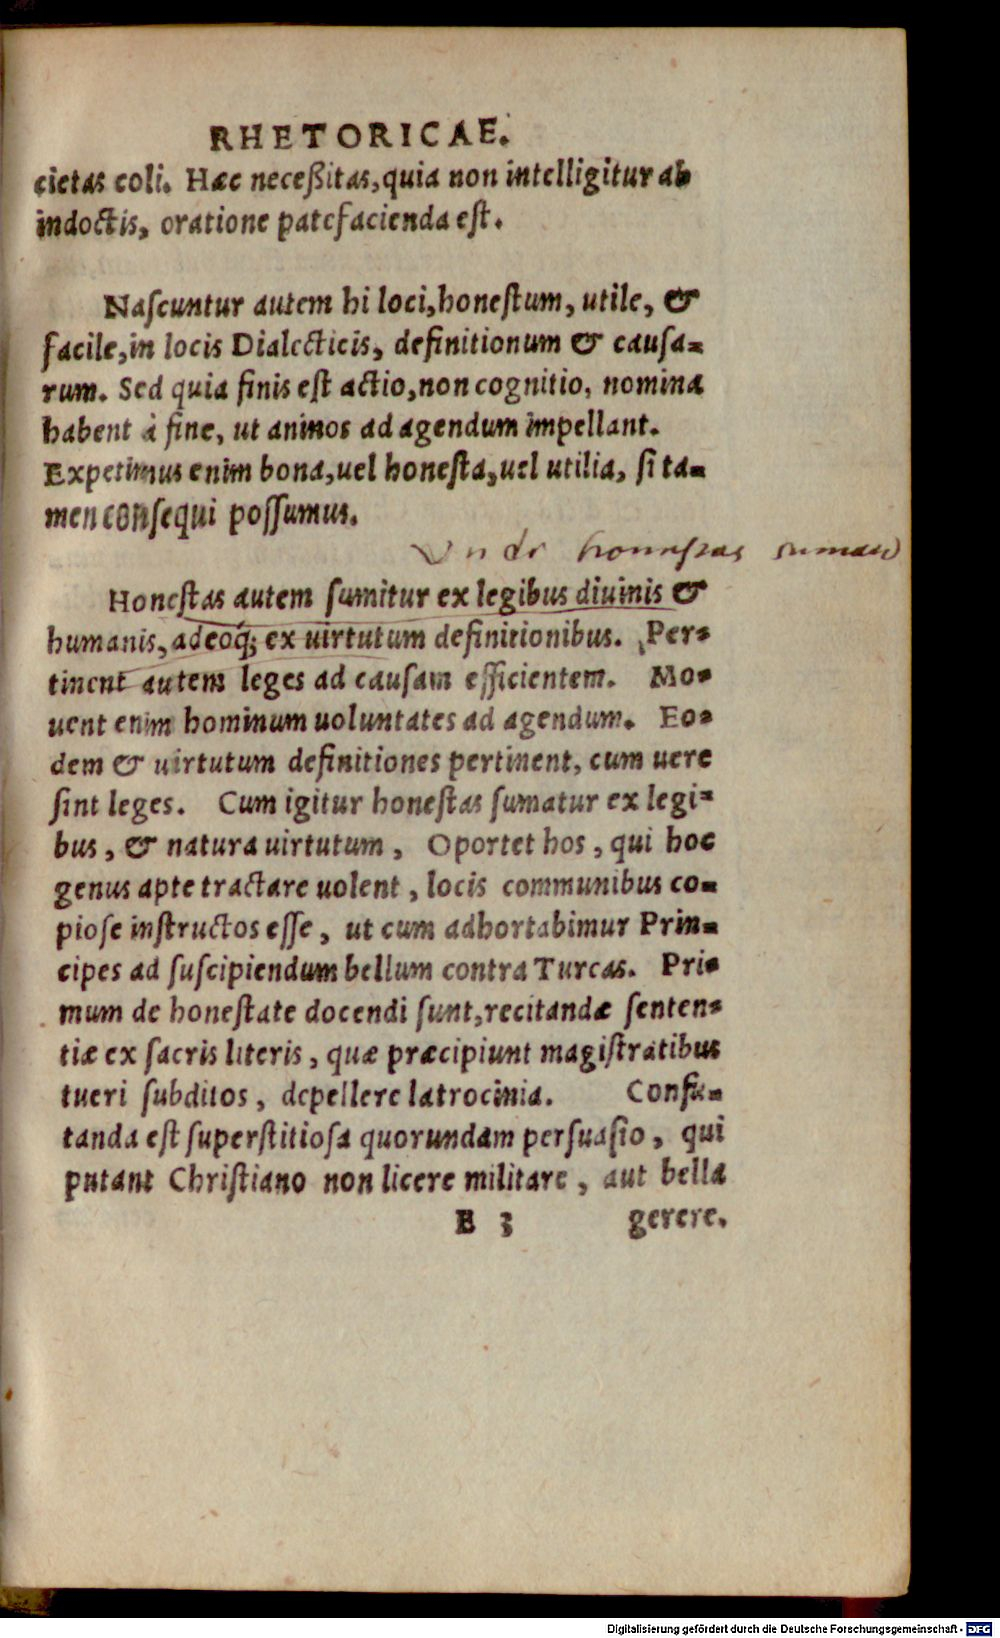 RHETORICAE.
cietas coli. Hæc neceßitas, quia non intelligitur ab
indoctis, oratione patefacienda est.
Nascuntur autem hi loci, honestum, utile, &
facile, in locis Dialecticis, definitionum & causa-
rum. Sed quia finis est actio, non cognitio, nomina
habent à fine, ut animos ad agendum impellant.
Expetimus enim bona, uel honesta, uel utilia, si ta-
men consequi possumus.
Unde honestas sumatur
Honestas autem sumitur ex legibus diuinis &
humanis, adeoq; ex uirtutum definitionibus. Per-
tinent autem leges ad causam efficientem. Mo-
uent enim hominum uoluntates ad agendum. Eo-
dem & uirtutum definitiones pertinent, cum uere
sint leges. Cum igitur honestas sumatur ex legi-
bus, & natura uirtutum, Oportet hos, qui hoc
genus apte tractare uolent, locis communibus co-
piose instructos esse, ut cum adhortabimur Prin-
cipes ad suscipiendum bellum contra Turcas. Pri-
mum de honestate docendi sunt, recitandæ senten-
tiæ ex sacris literis, quæ præcipiunt magistratibus
tueri subditos, depellere latrocinia. Confu-
tanda est superstitiosa quorundam persuasio, qui
putant Christiano non licere militare, aut bella
E 3 gerere.
Digitalisierung gefördert durch die Deutsche Forschungsgemeinschaft - DFG